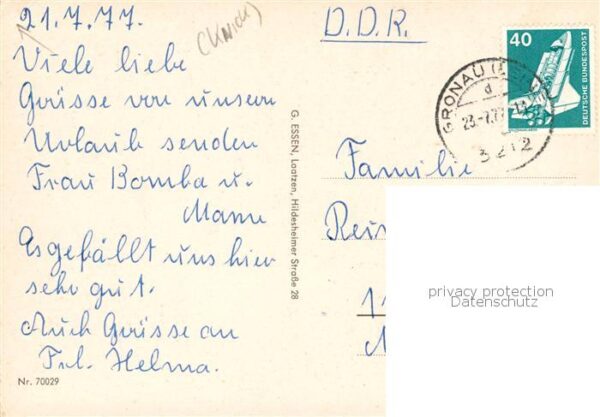 21.7.77.
(Knick)
Viele liebe
Grüsse von unserm
Urlaub senden
Frau Bomba u.
Mann
Es gefällt uns hier
sehr gut.
Auch Grüsse an
Frl. Helma.
Nr. 70029
G. ESSEN, Laatzen, Hildesheimer Straße 28
D.D.R.
40
DEUTSCHE BUNDESPOST
GRONAU
d
23.-7.77
3212
Familie
privacy protection
Datenschutz